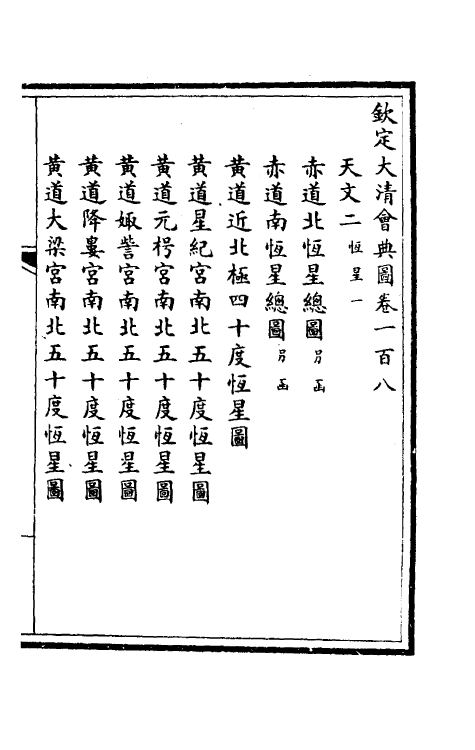 欽定大清會典圖卷一百八
天文二 恆星一
赤道北恆星總圖 另函
赤道南恆星總圖 另函
黃道近北極四十度恆星圖
黃道星紀宮南北五十度恆星圖
黃道元枵宮南北五十度恆星圖
黃道娵訾宮南北五十度恆星圖
黃道降婁宮南北五十度恆星圖
黃道大梁宮南北五十度恆星圖